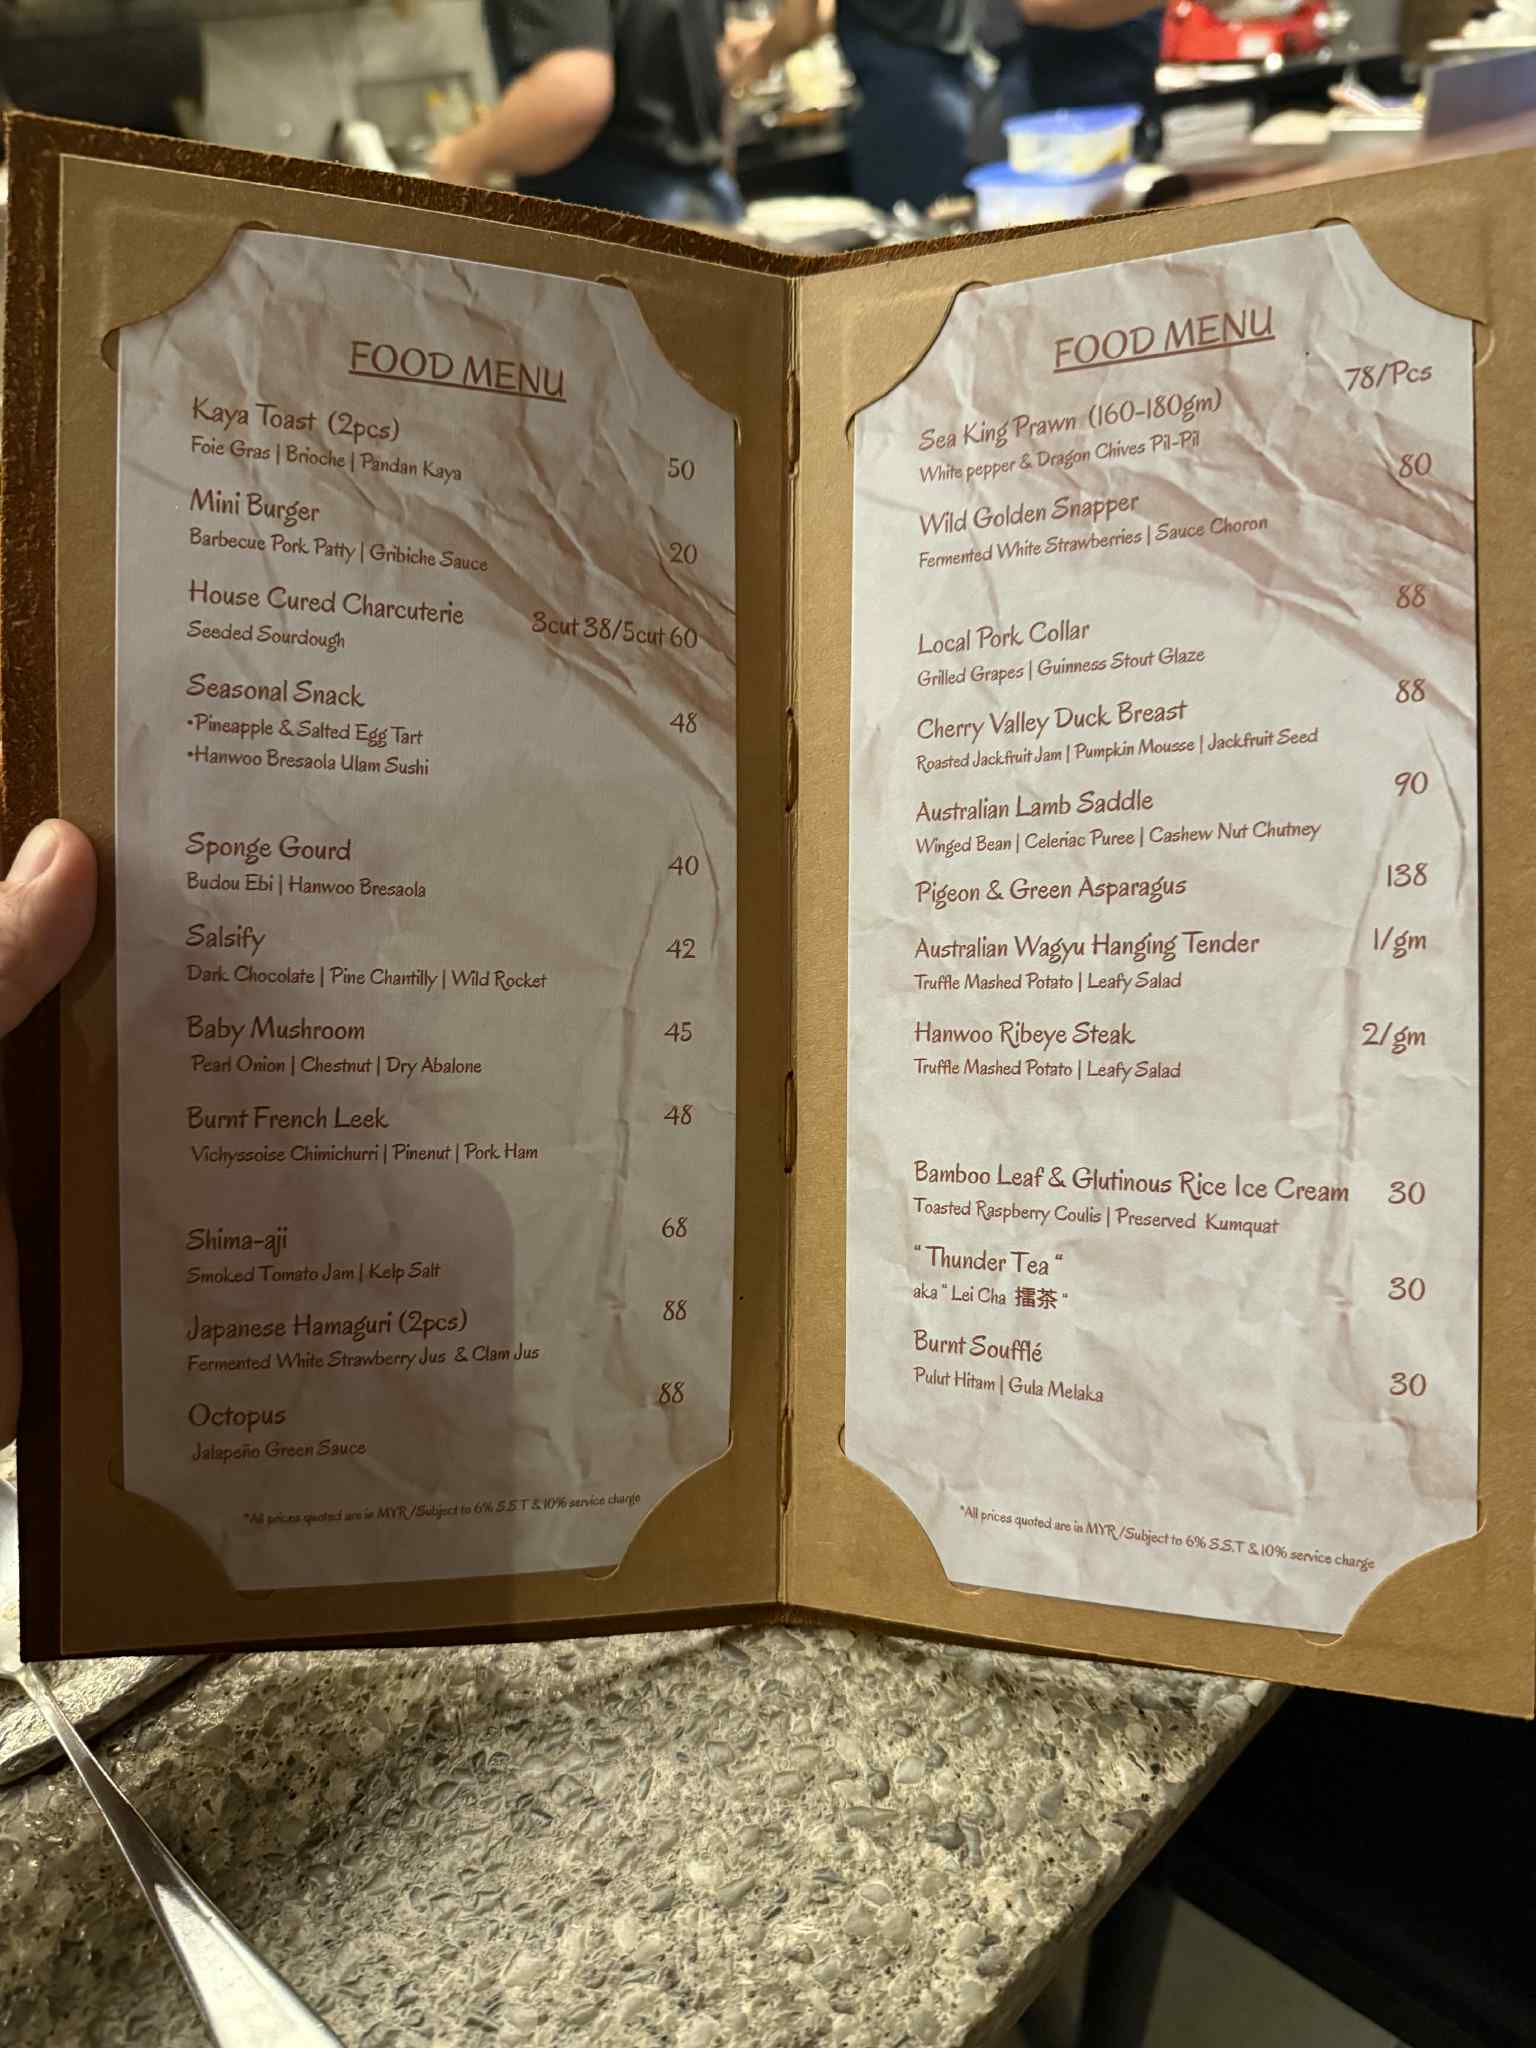 FOOD MENU
Kaya Toast (2pcs)
Foie Gras | Brioche | Pandan Kaya
50
Mini Burger
Barbecue Pork Patty | Gribiche Sauce
20
House Cured Charcuterie
3cut 38/5cut 60
Seeded Sourdough
Seasonal Snack
48
•Pineapple & Salted Egg Tart
•Hanwoo Bresaola Ulam Sushi
Sponge Gourd
40
Budou Ebi | Hanwoo Bresaola
Salsify
42
Dark Chocolate | Pine Chantilly | Wild Rocket
Baby Mushroom
45
Pearl Onion | Chestnut | Dry Abalone
Burnt French Leek
48
Vichyssoise Chimichurri | Pinenut | Pork Ham
Shima-aji
68
Smoked Tomato Jam | Kelp Salt
Japanese Hamaguri (2pcs)
88
Fermented White Strawberry Jus & Clam Jus
Octopus
88
Jalapeño Green Sauce
*All prices quoted are in MYR/Subject to 6% S.S.T & 10% service charge
FOOD MENU
78/Pcs
Sea King Prawn (160-180gm)
White pepper & Dragon Chives Pil-Pil
80
Wild Golden Snapper
Fermented White Strawberries | Sauce Choron
88
Local Pork Collar
Grilled Grapes | Guinness Stout Glaze
88
Cherry Valley Duck Breast
Roasted Jackfruit Jam | Pumpkin Mousse | Jackfruit Seed
90
Australian Lamb Saddle
Winged Bean | Celeriac Puree | Cashew Nut Chutney
Pigeon & Green Asparagus
138
Australian Wagyu Hanging Tender
1/gm
Truffle Mashed Potato | Leafy Salad
Hanwoo Ribeye Steak
2/gm
Truffle Mashed Potato | Leafy Salad
Bamboo Leaf & Glutinous Rice Ice Cream
30
Toasted Raspberry Coulis | Preserved Kumquat
“ Thunder Tea “
30
aka “ Lei Cha 擂茶 “
Burnt Soufflé
30
Pulut Hitam | Gula Melaka
*All prices quoted are in MYR/Subject to 6% S.S.T & 10% service charge